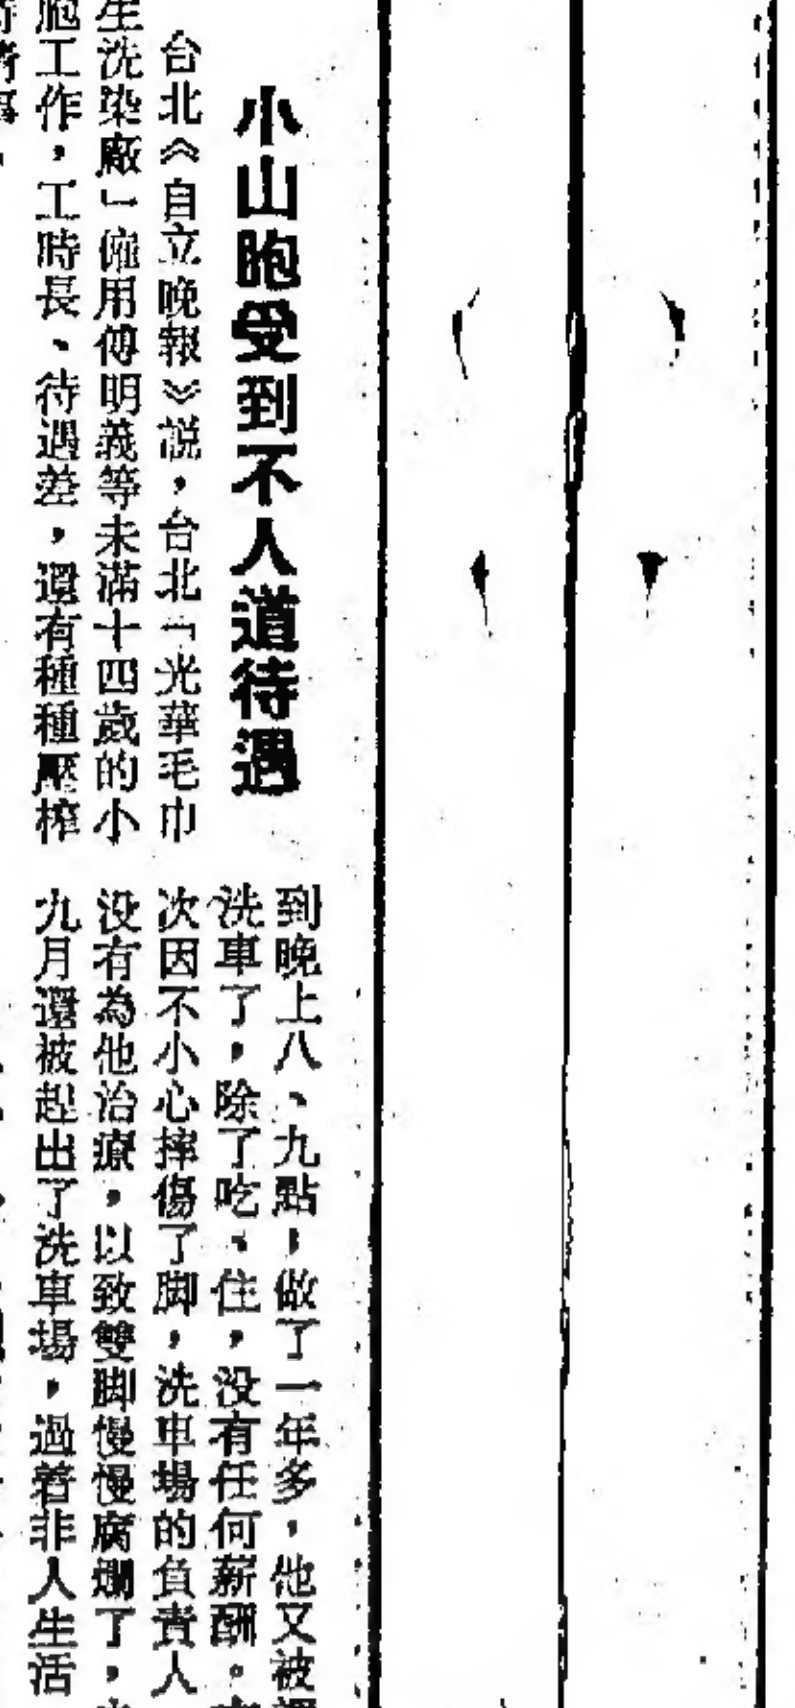 小山胞受到不人道待遇
台北《自立晚報》説，台北「光華毛巾
生洗染廠」僱用傅明義等未滿十四歲的小
胞工作，工時長、待遇差，還有種種壓榨
到晚上八、九點，做了一年多，他又被
洗車了，除了吃、住，没有任何薪酬。
次因不小心摔傷了脚，洗車場的負責人
没有為他治療，以致雙脚慢慢腐爛了，
九月還被趕出了洗車場，過着非人生活